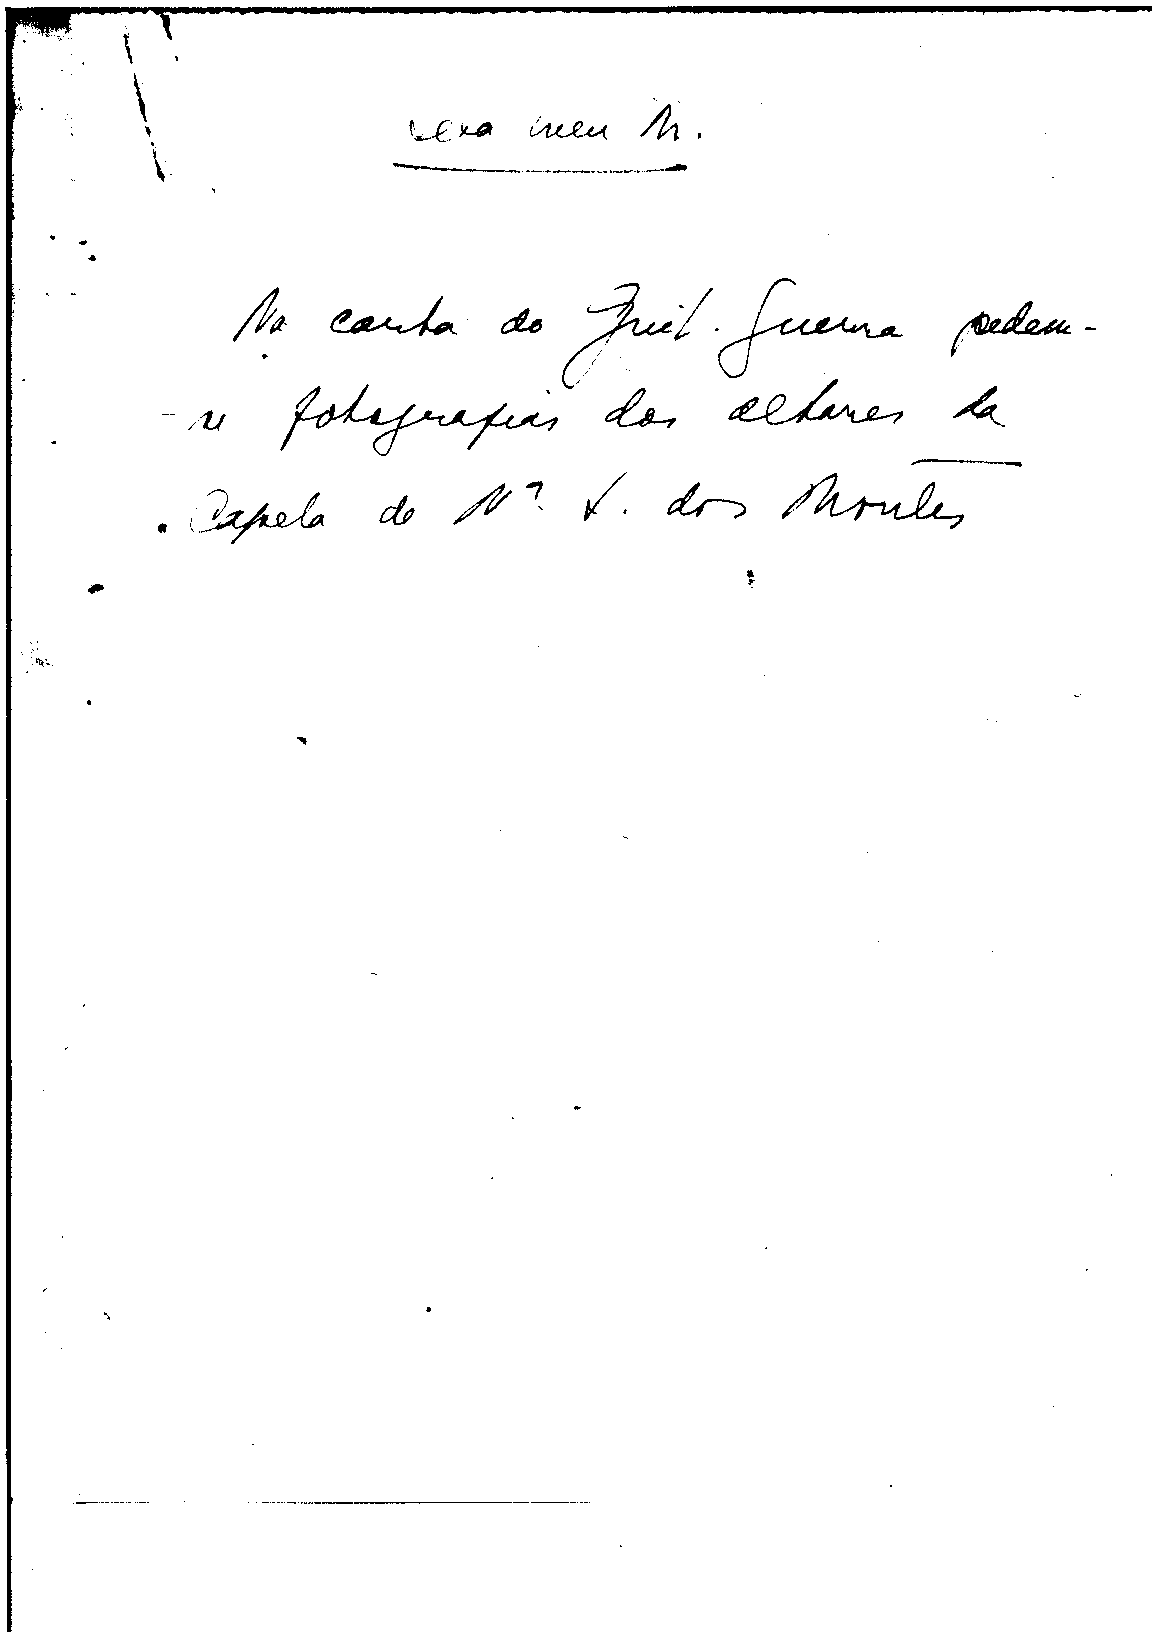 meu
Na carta do Guerra pedem-
-se fotografias dos altares da
Capela de Nª S. dos Montes